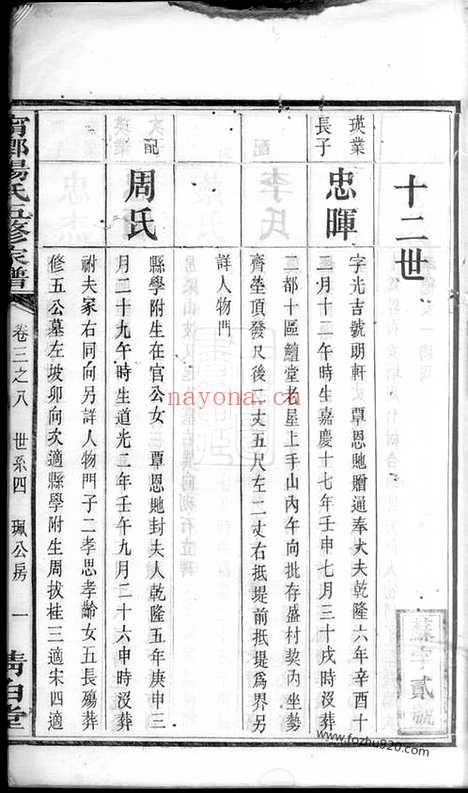 十二世
瑛業長子
忠暉
字光吉號明軒 覃恩貤贈通奉大夫乾隆六年辛酉十
二月十二午時生嘉慶十七年壬申七月三十戌時沒葬
二都十區鱣堂右星上手山內午向批存盛村契內坐勢
齊塋頂發尺後二丈五尺左二丈右抵堤前抵堤為界另
詳人物門
配
周氏
縣學附生在官公女 覃恩貤封夫人乾隆五年庚申三
月二十九午時生道光二年壬午九月二十六申時沒葬
祔夫冢右同向另詳人物門子二孝思孝齡女五長殤葬
修五公墓左坡卯向次適縣學附生周拔桂三適宋四適
寧鄉楊氏五修家譜
卷三之八 世系四 珮公房 一
清白堂
字貳號
nayona.cn
www.fozhu920.com